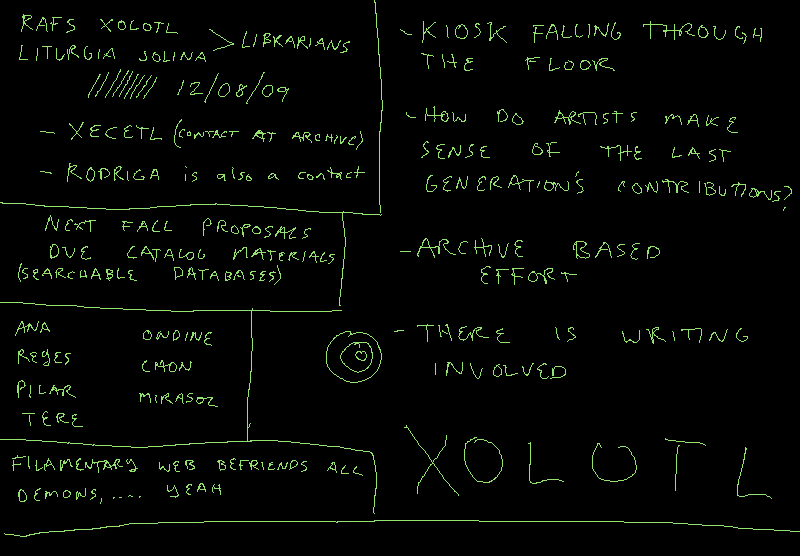 RAFS XOLOTL
LITURGIA JOLINA > LIBRARIANS
///////// 12/08/09
- XECETL (CONTACT AT ARCHIVE)
- RODRIGA is also a contact
NEXT FALL PROPOSALS
DUE CATALOG MATERIALS
(SEARCHABLE DATABASES)
ANA
REYES
PILAR
TERE
ONDINE
CHON
MIRASOL
FILAMENTARY WEB BEFRIENDS ALL
DEMONS,.... YEAH
- KIOSK FALLING THROUGH
THE FLOOR
- HOW DO ARTISTS MAKE
SENSE OF THE LAST
GENERATION'S CONTRIBUTIONS?
- ARCHIVE BASED
EFFORT
- THERE IS WRITING
INVOLVED
XOLOTL